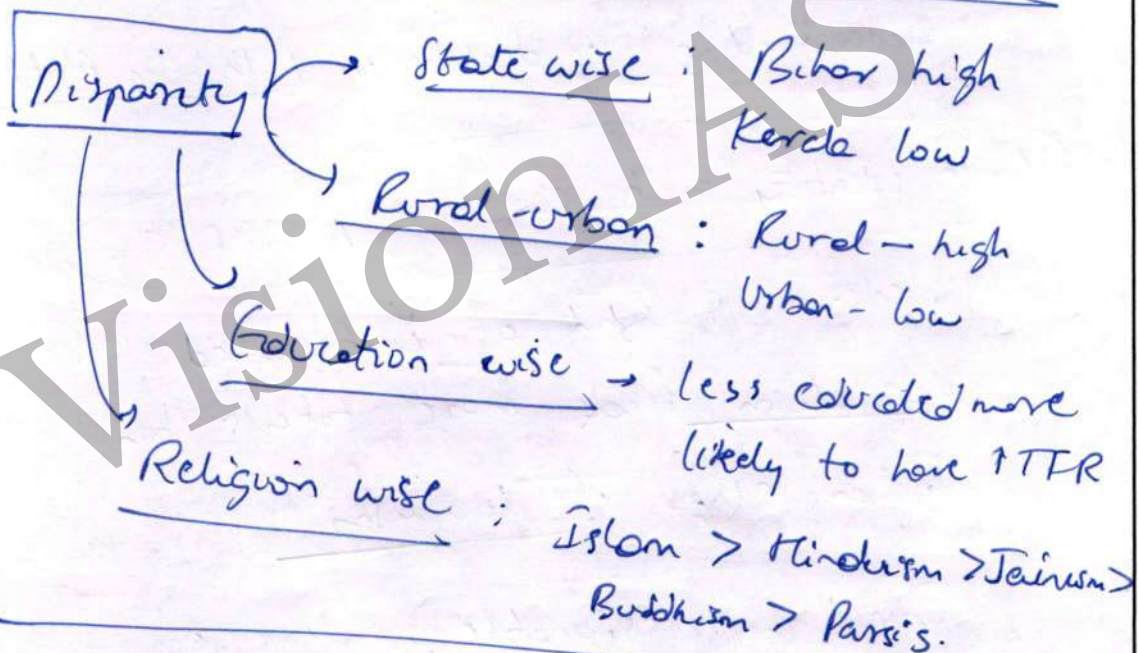 Disparity
State wise : Bihar high
Kerala low
Rural-urban : Rural - high
Urban - low
Education wise → less educated more
likely to have ↑TFR
Religion wise ; Islam > Hinduism > Jainism >
Buddhism > Parsis.
VisionIAS